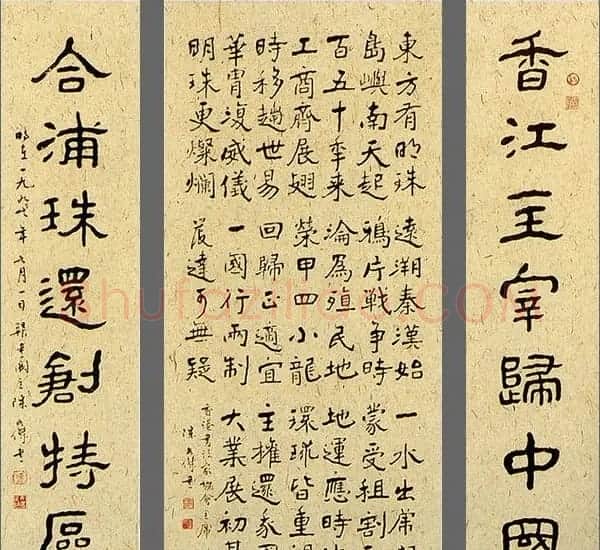 香江主宰歸中國
東方有明珠 遠溯秦漢始 一水出
島嶼南天起 鴉片戰爭時 蒙受租割
百五十年來 淪為殖民地 地運應時
工商齊展翅 榮甲四小龍 環球皆重
時移趨世易 回歸正適宜 主權還
華冑復威儀 一國行兩制 大業展初基
明珠更燦爛 發達可無疑
香港書法家協會主席
陳
合浦珠還創特區
時在一九九七年七月一日
shufaziliao.COM